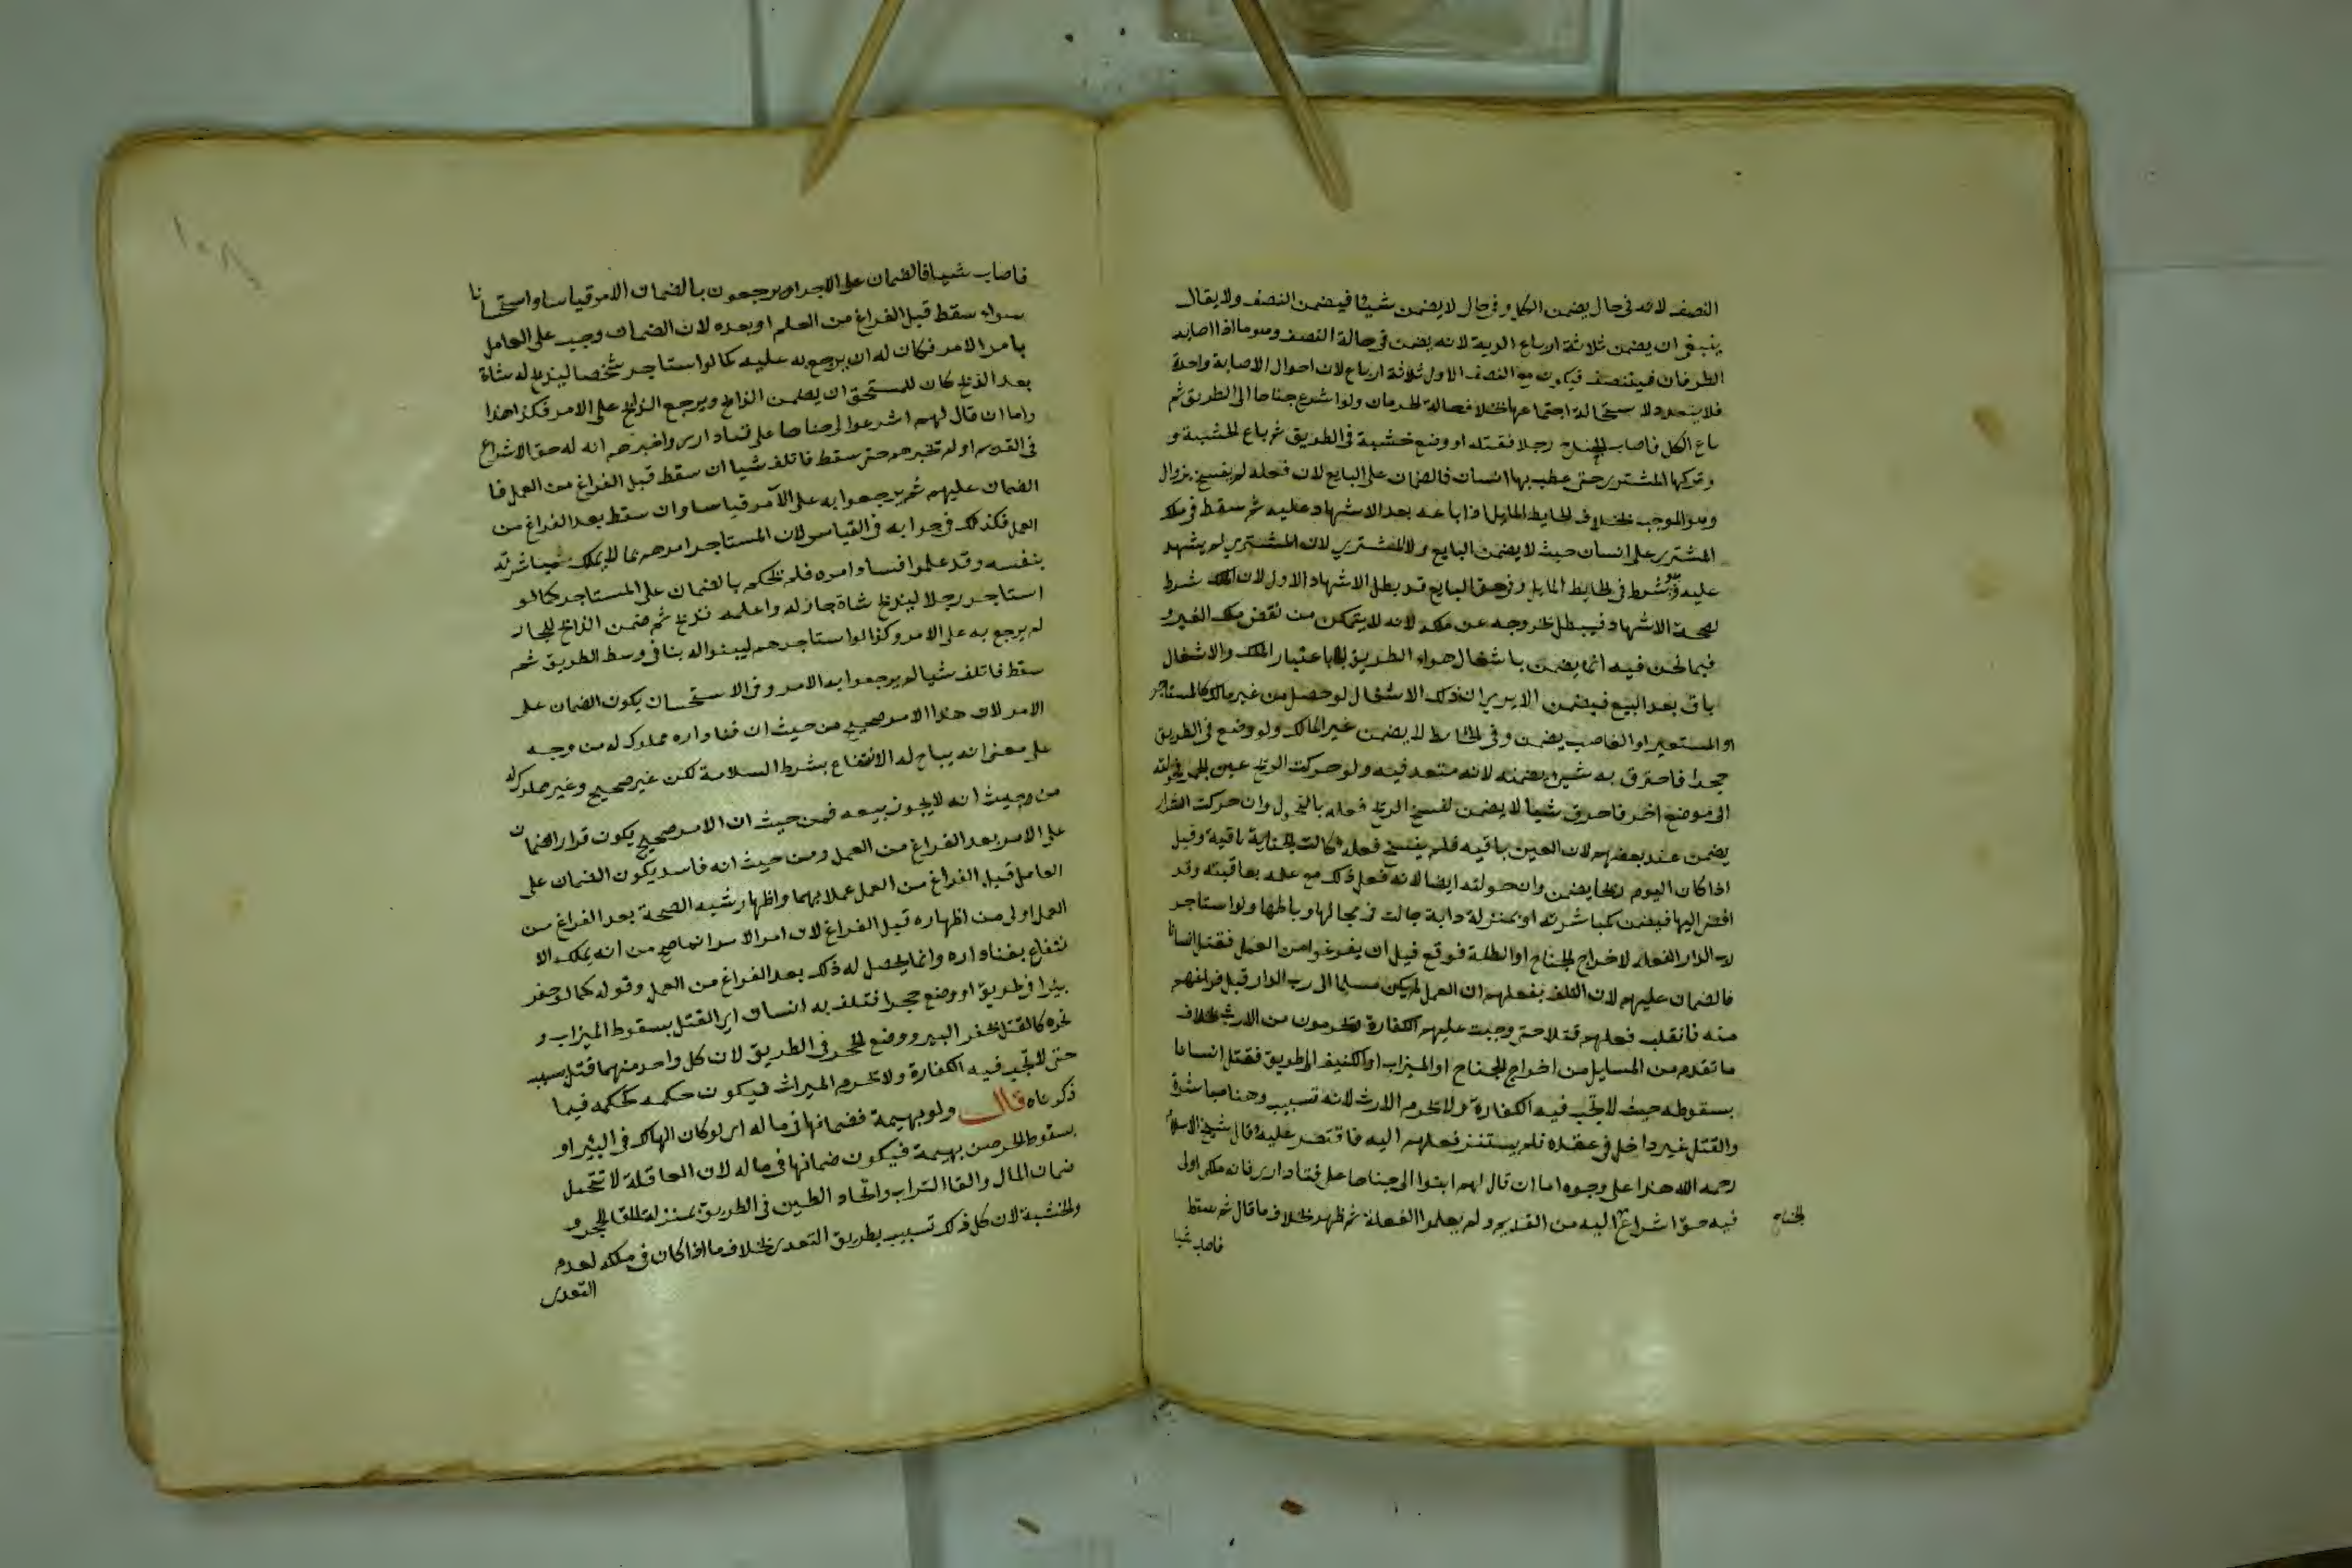 النصف لانه فى حال يضمن الكل وفى حال لا يضمن شيئا فيضمن النصف ولا يقال
ينبغى ان يضمن ثلاثة ارباع الدية لانه يضمن فى حالة النصف وهو ما اذا اصابه
الطرفان فيتنصف فيكون مع النصف الاول ثلاثة ارباع لان احوال الاصابة واحدة
فلا يتعدد لاستحالة اجتماعها بخلاف حالة الحرمان ولو اشرع جناحا الى الطريق ثم
باع الكل فاصاب الجناح رجلا فقتله او وضع خشبة فى الطريق ثم باع الخشبة و
وتركها المشترى حتى عطب بها انسان فالضمان على البايع لان فعله لم ينفسخ بزوال
وهو الموجب بخلاف الحايط المايل اذا باعه بعد الاشهاد عليه ثم سقط فى ملك
المشترى على انسان حيث لا يضمن البايع ولا المشترى لان المشترى لم يشهد
عليه وهو شرط فى الحايط المايل وفى حق البايع قد بطل الاشهاد الاول لان الملك شرط
لصحة الاشهاد فيبطل بخروجه عن ملكه لانه لا يتمكن من نقض ملك الغير و
فيما نحن فيه انما يضمن باشغال هواء الطريق لا باعتبار الملك والاشغال
باق بعد البيع فيضمن الا يرى ان ذلك الاشغال لو حصل من غير مالك كالمستاجر
او المستعير او الغاصب يضمن وفى الحايط لا يضمن غير المالك ولو وضع فى الطريق
جمرا فاحترق به شئ يضمنه لانه متعد فيه ولو حركت الريح عين الجمر فحولته
الى موضع اخر فاحرق شيا لا يضمن لفسخ الريح فعله بالتحول وان حركت الشرار
يضمن عند بعضهم لان العين باقية فلم ينفسخ فعله فكانت الجناية باقية وقيل
اذا كان اليوم ريحا يضمن وان حولته ايضا لانه فعل ذلك مع علمه بعاقبته وقد
افضى اليها فيضمن كمباشرته او بمنزلة دابة جالت فى مجالها ورباطها ولو استاجر
رب الدار الفعلة لاخراج الجناح او الظلة فوقع قبل ان يفرغوا من العمل فقتل انسانا
فالضمان عليهم لان التلف بفعلهم لان العمل لم يكن مسلما الى رب الدار قبل فراغهم
منه فانقلب فعلهم قتلا حتى وجبت عليهم الكفارة ويحرمون من الارث بخلاف
ما تقدم من المسايل من اخراج الجناح او الميزاب او الكنيف الى طريق فقتل انسانا
بسقوطه حيث لا تجب فيه الكفارة ولا يحرم الارث لانه تسبيب وهنا مباشرة
والقتل غير داخل فى عقده فلم يستند فعلهم اليه فاقتصر عليه وقال شيخ الاسلام
رحمه الله هذا على وجوه اما ان قال لهم ابنوا لى جناحا على فناء دارى فانه ملكى اولى
فيه حق اشراع اليه من القديم ولم يعلموا الفعلة ثم ظهر بخلاف ما قال ثم سقط
الجناح
فاصاب شيا
فاصاب شيا فالضمان على الاجراء ويرجعون بالضمان الامر قياسا واستحسانا
سواء سقط قبل الفراغ من العلم او بعده لان الضمان وجب على العامل
بامر الامر فكان له ان يرجع به عليه كما لو استاجر شخصا ليذبح له شاة
بعد الذبح كان للمستحق ان يضمن الذابح ويرجع الذابح على الامر فكذا هذا
واما ان قال لهم اشرعوا لى جناحا على فناء دارى واخبرهم انه له حق الاشراع
فى القديم اولم يخبرهم حتى سقط فاتلف شيا ان سقط قبل الفراغ من العمل فا
الضمان عليهم ثم يرجعوا به على الآمر قياسا وان سقط بعد الفراغ من
العمل فكذلك فى جوابه فى القياس لان المستاجر امرهم بما لا يملك مباشرته
بنفسه وقد علموا فساد امره فلم يحكم بالضمان على المستاجر كما لو
استاجر رجلا ليذبح شاة جار له واعلمه فذبح ثم ضمن الذابح للجار
لم يرجع به على الامر وكذا لو استاجرهم ليبنوا له بنا فى وسط الطريق ثم
سقط فاتلف شيا لم يرجعوا به الامر وفى الاستحسان يكون الضمان على
الامر لان هذا الامر صحيح من حيث ان فناء داره مملوك له من وجه
على معنى انه يباح له الانتفاع بشرط السلامة لكن غير صحيح وغير مملوك له
من حيث انه لا يجوز بيعه فمن حيث ان الامر صحيح يكون قرار الضمان
على الامر بعد الفراغ من العمل ومن حيث انه فاسد يكون الضمان على
العامل قبل الفراغ من العمل عملا بهما واظهار شبه الصحة بعد الفراغ من
العمل اولى من اظهاره قبل الفراغ لان امر الامر انما صح من انه يملك الا
نتفاع بفناء داره وانما يحصل له ذلك بعد الفراغ من العمل وقوله كما لو حفر
بيرا فى طريق او وضع حجرا فتلف به انسان اى القتل بسقوط الميزاب و
نحوه كالقتل بحفر البير ووضع الحجر فى الطريق لان كل واحد منهما قتل بسبب
حتى لا تجب فيه الكفارة ولا يحرم الميراث فيكون حكمه كحكمه فيما
ذكرناه قال ولو بهيمة فضمانها فى ماله اى لو كان الهالك فى البئر او
بسقوط الجرصن بهيمة فيكون ضمانها فى ماله لان العاقلة لا تتحمل
ضمان المال والقا التراب واتخاذ الطين فى الطريق بمنزلة القا الحجر و
والخشبة لان كل ذلك تسبيب بطريق التعدى بخلاف ما اذا كان فى ملكه لعدم
التعدى